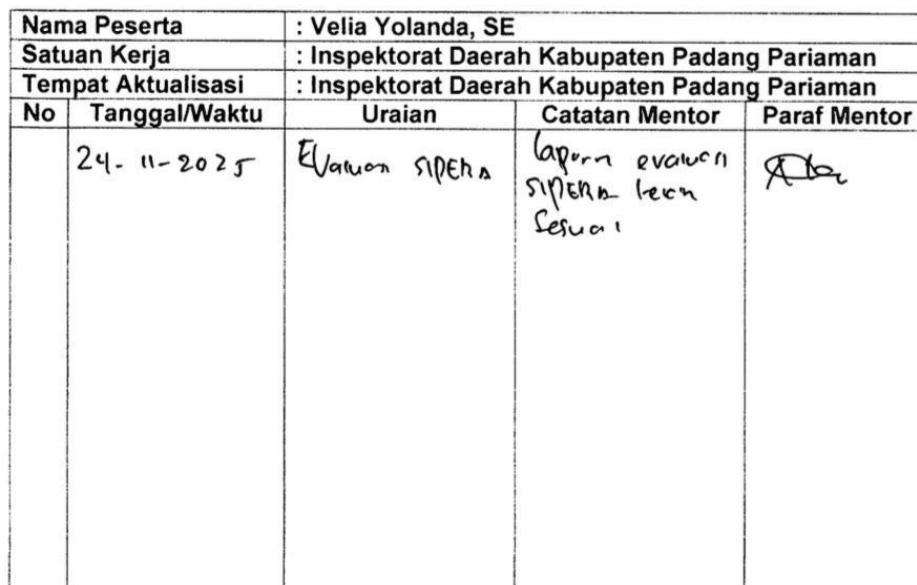 Nama Peserta : Velia Yolanda, SE
Satuan Kerja : Inspektorat Daerah Kabupaten Padang Pariaman
Tempat Aktualisasi : Inspektorat Daerah Kabupaten Padang Pariaman
No Tanggal/Waktu Uraian Catatan Mentor Paraf Mentor
24-11-2025 Evaluasi SIPERA Laporan evaluasi
SIPERA
Sesuai